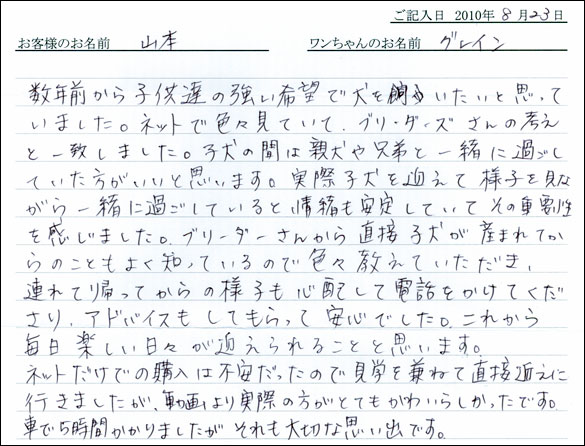 ご記入日 2010年 8月23日
お客様のお名前 山本 ワンちゃんのお名前 グレイン
数年前から子供達の強い希望で犬を飼いたいと思って
いました。ネットで色々見ていて、ブリーダーズさんの考え
と一致しました。子犬の間は親犬や兄弟と一緒に過ごし
ていた方がいいと思います。実際子犬を迎えて様子を見な
がら一緒に過ごしていると情緒も安定していてその重要性
を感じました。ブリーダーさんから直接子犬が産まれてか
らのこともよく知っているので色々教えていただき、
連れて帰ってからの様子も心配して電話をかけてくだ
さり、アドバイスもしてもらって安心でした。これから
毎日楽しい日々が迎えられることと思います。
ネットだけでの購入は不安だったので見学を兼ねて直接迎えに
行きましたが、動画より実際の方がとてもかわいらしかったです。
車で5時間かかりましたがそれも大切な思い出です。